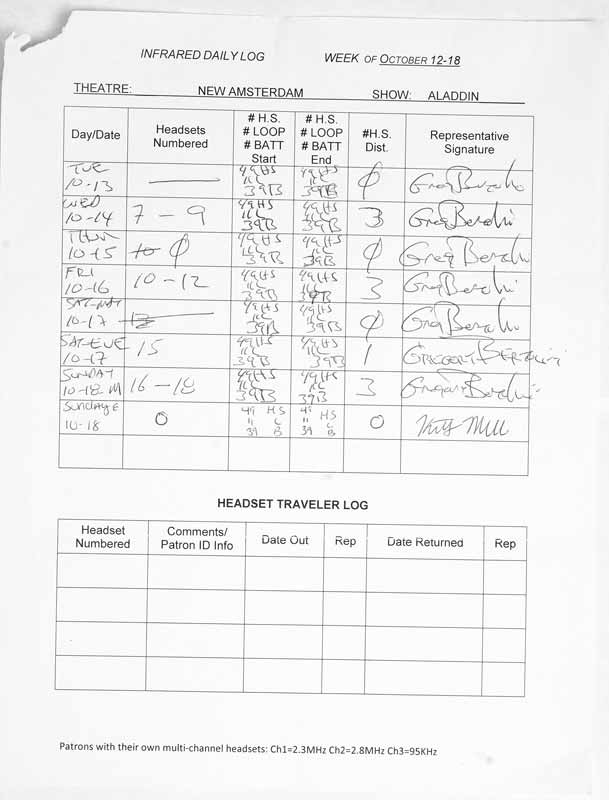 INFRARED DAILY LOG WEEK OF OCTOBER 12-18
THEATRE: NEW AMSTERDAM SHOW: ALADDIN
Day/Date Headsets Numbered # H.S. # LOOP # BATT Start # H.S. # LOOP # BATT End #H.S. Dist. Representative Signature
TUE 10-13 — 49HS 11L 39B 49HS 11L 39B 0
WED 10-14 7-9 49HS 11L 39B 49HS 11L 39B 3
THUR 10-15 0 49HS 11L 39B 49HS 11L 39B 0
FRI 10-16 10-12 49HS 11L 39B 49HS 11L 39B 3
SAT-MAT 10-17 49HS 11L 39B 49HS 11L 39B 0
SAT-EVE 10-17 15 49HS 11L 39B 49HS 11L 39B 1
SUNDAY 10-18 M 16-18 49HS 11L 39B 49HS 11L 39B 3
SUNDAY E 10-18 0 49 HS 11 L 39 B 49 HS 11 L 39 B 0
HEADSET TRAVELER LOG
Headset Numbered Comments/ Patron ID Info Date Out Rep Date Returned Rep
Patrons with their own multi-channel headsets: Ch1=2.3MHz Ch2=2.8MHz Ch3=95KHz